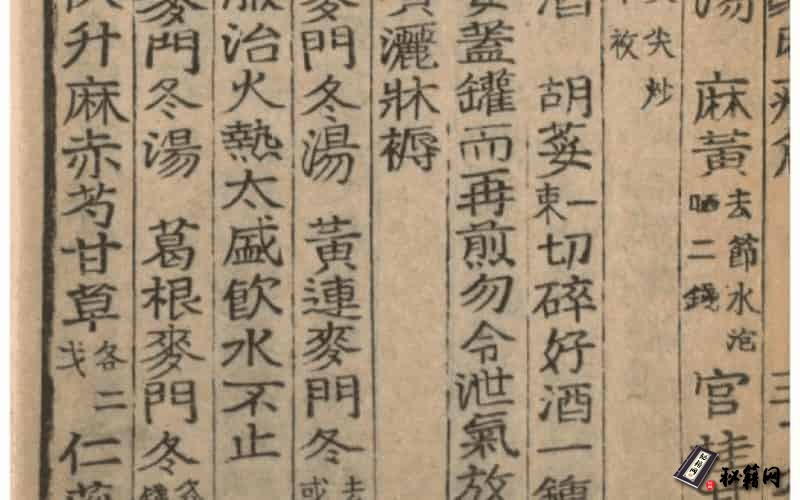 湯 麻黃去節水泡晒二錢 官桂
尖炒
枚
酒 胡荽一束切碎好酒一鍾
荽蓋罐而再煎勿令泄氣放
灑牀褥
麥門冬湯 黃連麥門冬去
服治火熱太盛飲水不止
麥門冬湯 葛根麥門冬
升麻赤芍甘草各二戈 仁
秘籍网